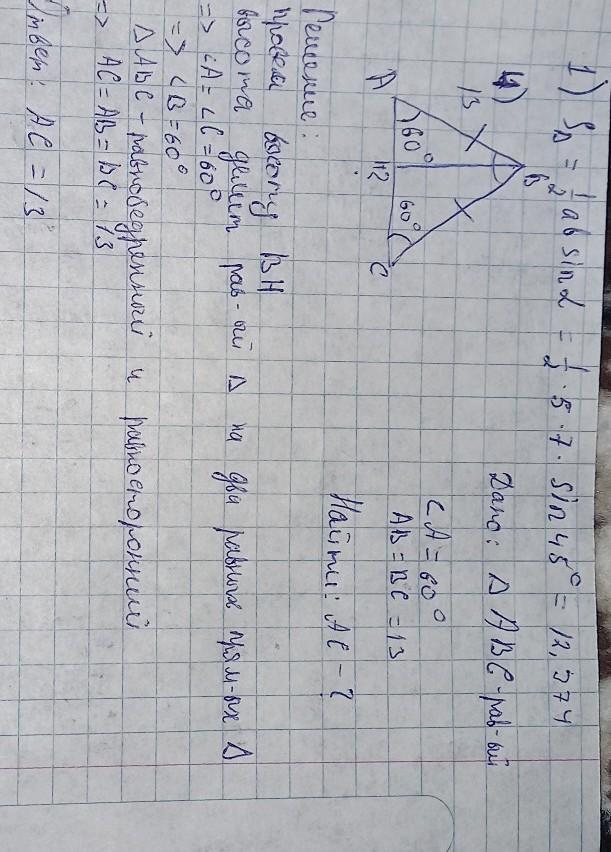 1) S∆ = 1/2 ab sin α = 1/2 · 5 · 7 · sin 45° = 12,374
4)
B
13
60°
60°
A
H
C
Дано: ∆ ABC - рав-ый
∠A = 60°
AB = BC = 13
Найти: AC - ?
Решение:
провели высоту BH
высота делит рав-ый ∆ на два равных прям-ых ∆
=> ∠A = ∠C = 60°
=> ∠B = 60°
∆ ABC - равнобедренный и равносторонний
=> AC = AB = BC = 13
Ответ: AC = 13